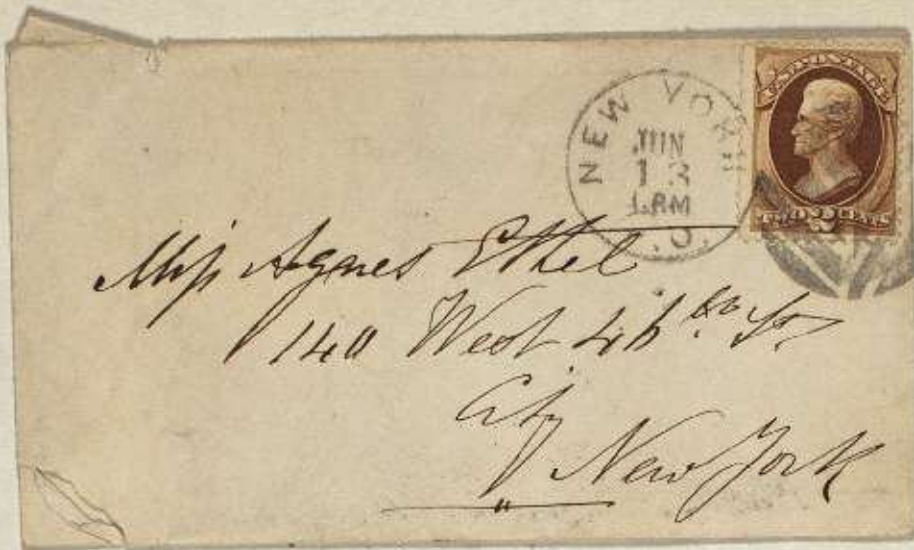 NEW YORK
JUN
13
P.O.
U.S. POSTAGE
TWO 2 CENTS
Miss Agnes Ethel
West St
City
New York